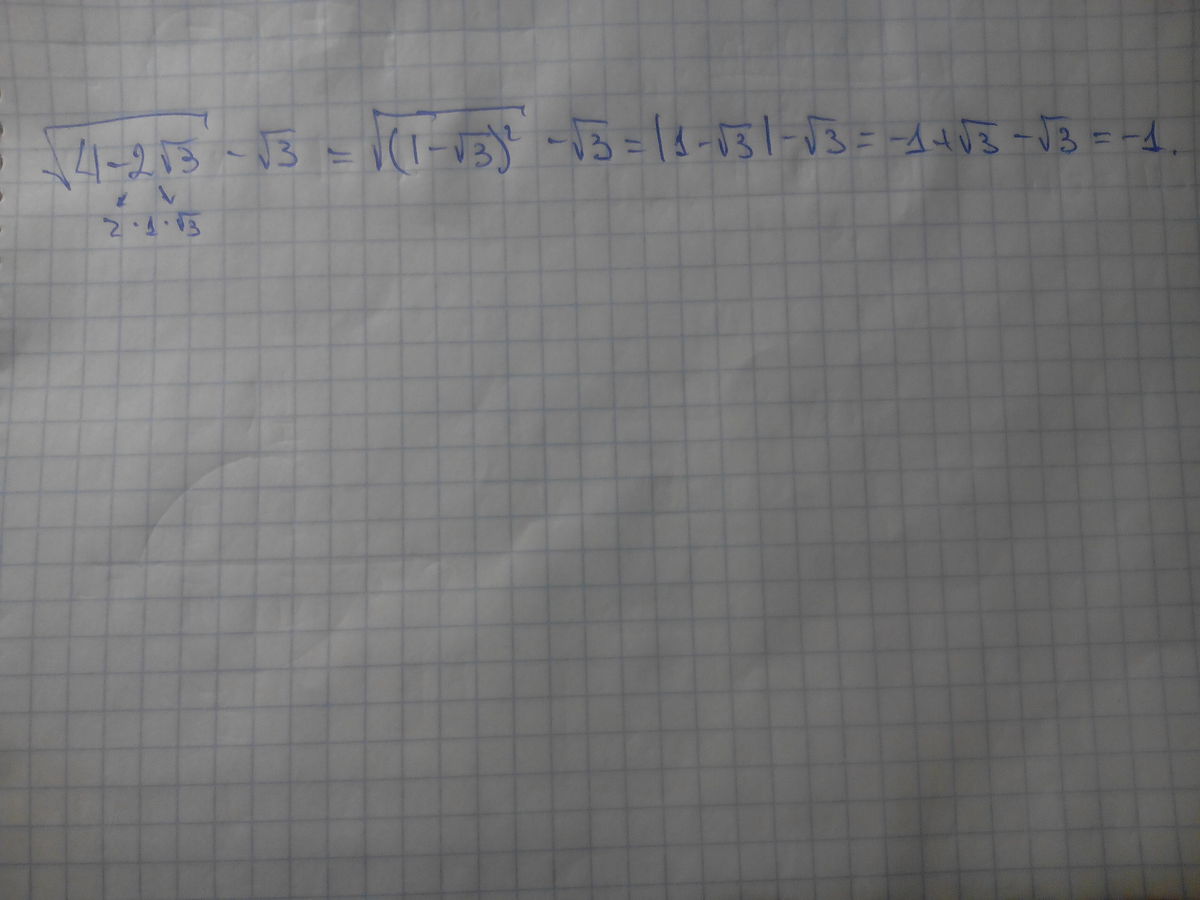 √(4-2√3) - √3 = √((1-√3)²) - √3 = |1-√3| - √3 = -1+√3 - √3 = -1.
2·1·√3